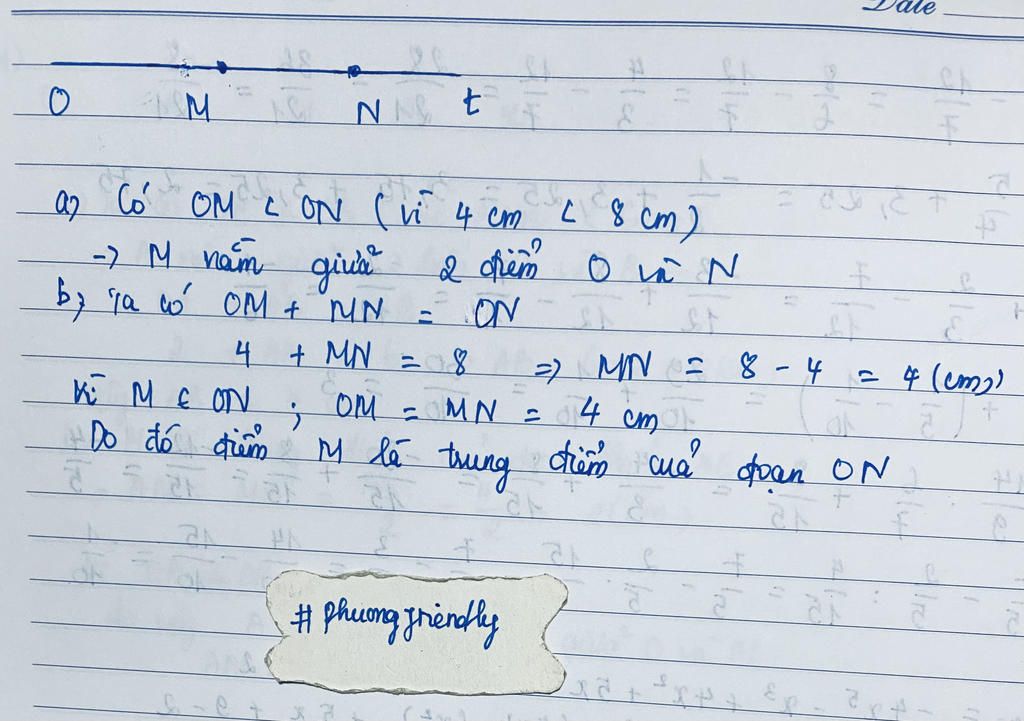 Date
O M N t
a, Có OM < ON (vì 4 cm < 8 cm)
-> M nằm giữa 2 điểm O và N
b, Ta có OM + MN = ON
4 + MN = 8 => MN = 8 - 4 = 4 (cm)
Vì M ∈ ON ; OM = MN = 4 cm
Do đó điểm M là trung điểm của đoạn ON
# phuongfriendly